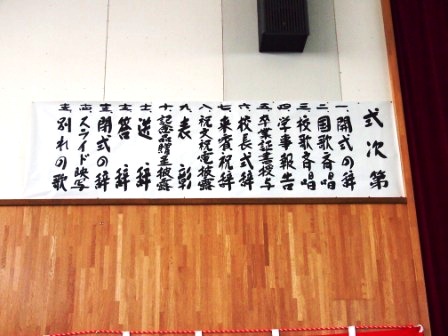 式次第
一、開式の辞
二、国歌斉唱
三、校歌斉唱
四、学事報告
五、卒業証書授与
六、校長式辞
七、来賓祝辞
八、祝文祝電披露
九、表彰
十、記念品贈呈披露
十一、送辞
十二、答辞
十三、閉式の辞
十四、スライド映写
十五、別れの歌